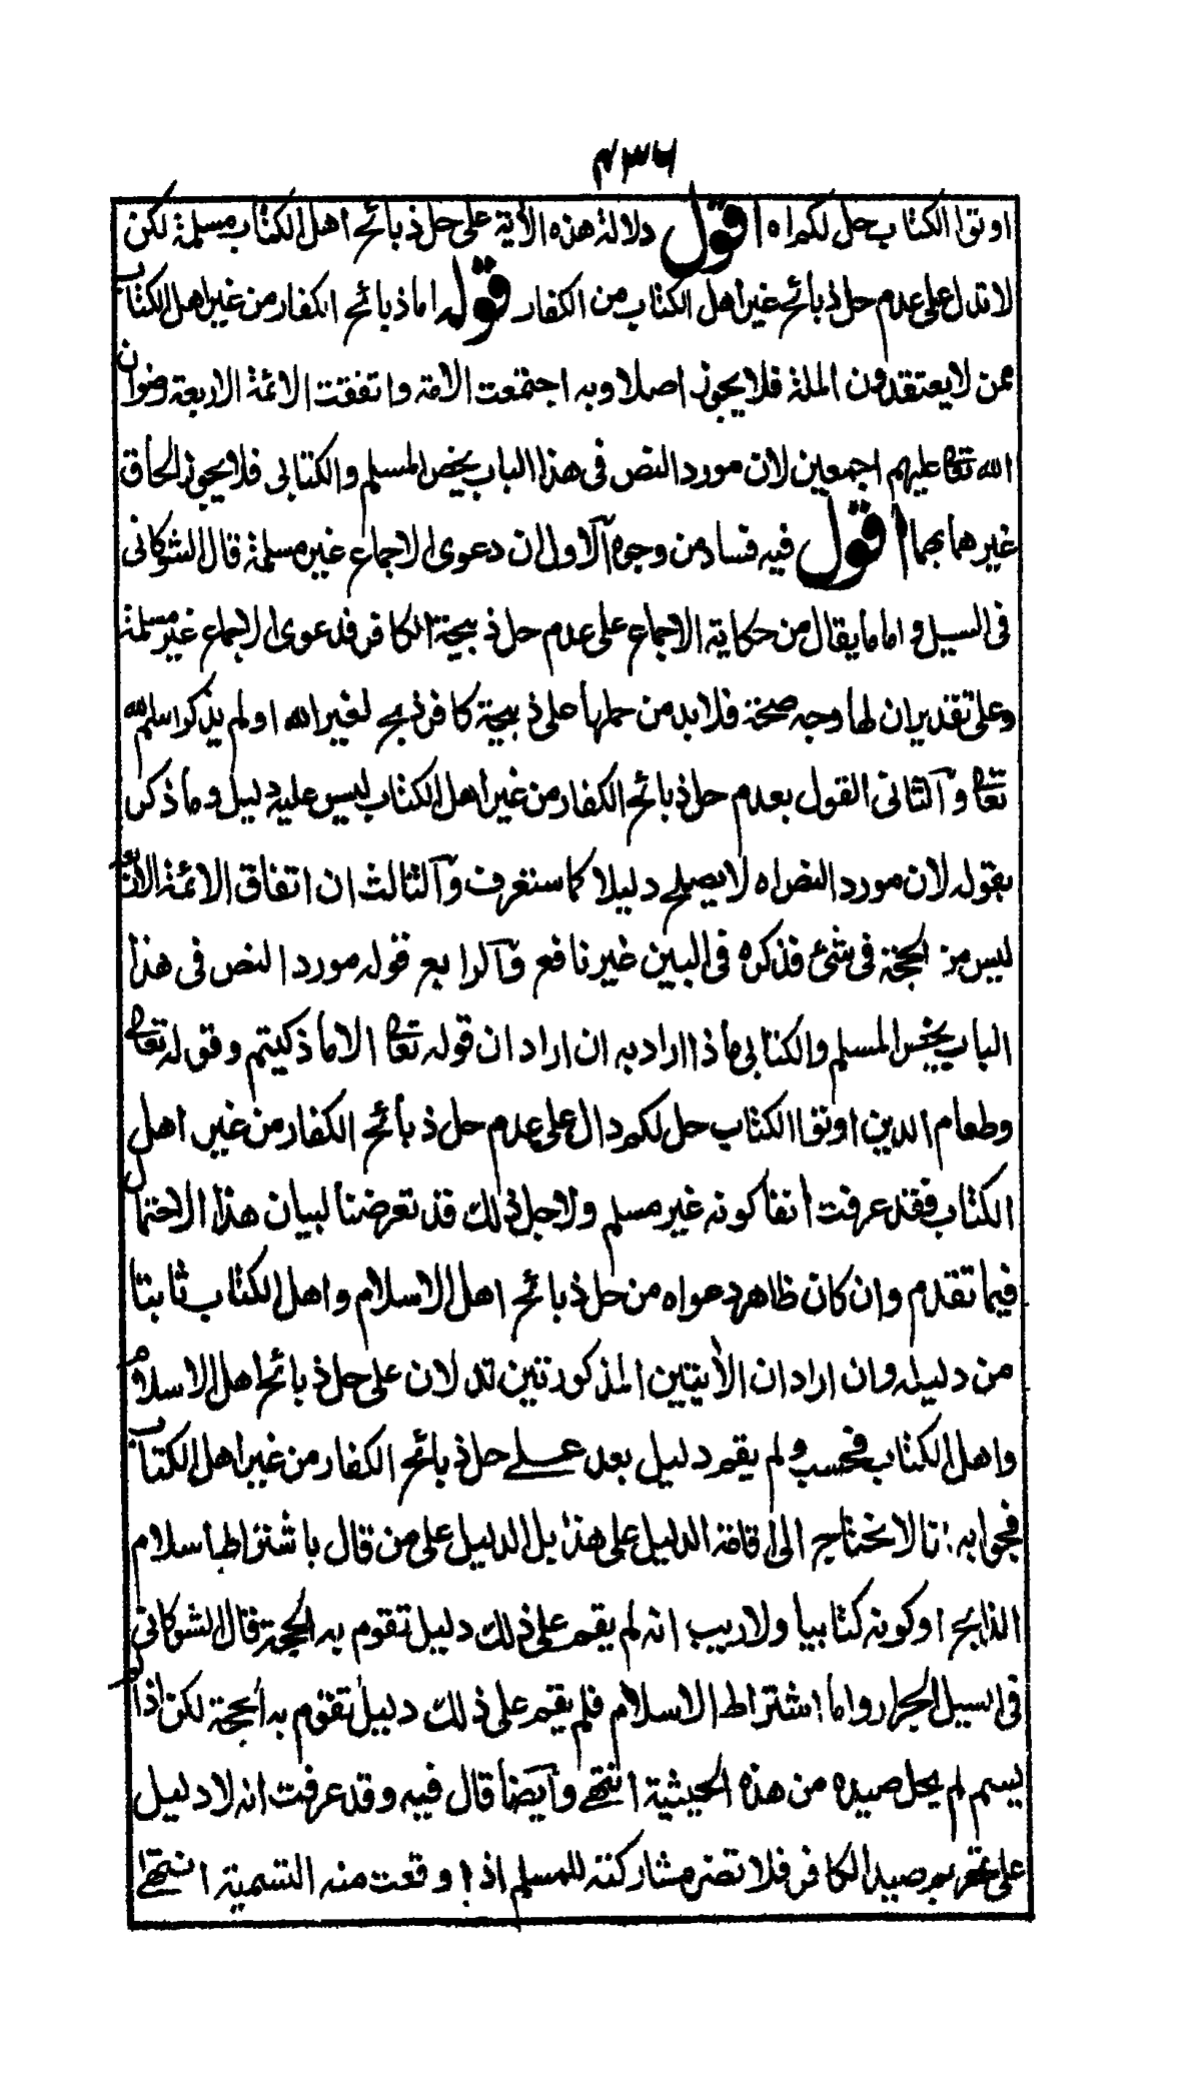 ٤٣٦
اوتوا الكتاب حل لكم اه اقول دلالة هذه الأية على حل ذبائح اهل الكتاب مسلمة لكن
لا تدل على عدم حل ذبائح غير اهل الكتاب من الكفار قوله اما ذبائح الكفار من غير اهل الكتاب
ممن لا يعتقدون الملة فلا يجوز اصلا وبه اجتمعت الامة واتفقت الائمة الاربعة رضوان
الله تعالى عليهم اجمعين لان مورد النص فى هذا الباب يخص المسلم والكتابى فلا يجوز الحاق
غيرهما بهما اقول فيه فساد من وجوه الاول ان دعوى الاجماع غير مسلمة قال الشوكانى
فى السيل واما ما يقال من حكاية الاجماع على عدم حل ذبيحة الكافر فدعوى الاجماع غير مسلمة
وعلى تقدير ان لها وجه صحة فلا بد من حملها على ذبيحة كافر ذبح لغير الله او لم يذكر اسم الله
تعالى والثانى القول بعدم حل ذبائح الكفار من غير اهل الكتاب ليس عليه دليل وما ذكر
بقوله لان مورد النص اه لا يصلح دليلا كما ستعرف والثالث ان اتفاق الائمة الاربعة
ليس من الحجة فى شئ فذكره فى البين غير نافع والرابع قوله مورد النص فى هذا
الباب يخص المسلم والكتابى ماذا اراد به ان اراد ان قوله تعالى الا ما ذكيتم وقوله تعالى
وطعام الذين اوتوا الكتاب حل لكم دال على عدم حل ذبائح الكفار من غير اهل
الكتاب فقد عرفت أنفا كونه غير مسلم ولاجل ذلك قد تعرضنا لبيان هذا الاحتمال
فيما تقدم وان كان ظاهر دعواه من حل ذبائح اهل الاسلام واهل الكتاب ثابتا
من دليله وان اراد ان الأيتين المذكورتين تدلان على حل ذبائح اهل الاسلام
واهل الكتاب فحسب ولم يقم دليل بعد على حل ذبائح الكفار من غير اهل الكتاب
فجوابه انا لا نحتاج الى اقامة الدليل على هذا بل الدليل على من قال باشتراط اسلام
الذابح او كونه كتابيا ولا ريب انه لم يقم على ذلك دليل تقوم به الحجة قال الشوكانى
فى السيل الجرار واما اشتراط الاسلام فلم يقم على ذلك دليل تقوم به الحجة لكن اذا لم
يسم لم يحل صيده من هذه الحيثية انتهى وايضا قال فيه وقد عرفت انه لا دليل
على تحريم صيد الكافر فلا تضر مشاركته للمسلم اذا وقعت منه التسمية انتهى